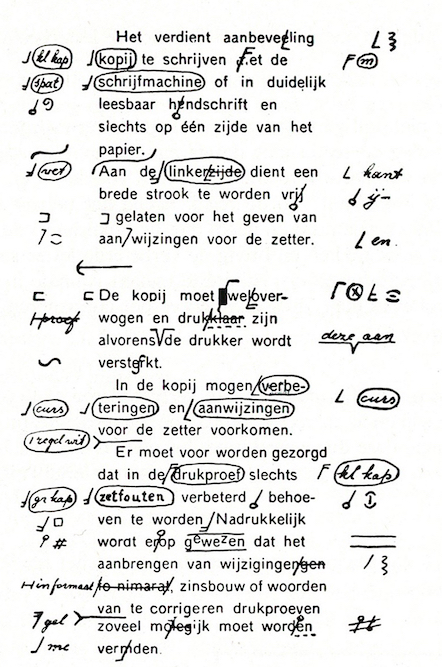 Het verdient aanbeveeling
kl kap kopij te schrijven f.et de F m
spat schrijfmachine of in duidelijk
leesbaar hendschrift en
slechts op één zijde van het
papier.
vet Aan de linkerzijde dient een kant
brede strook te worden vrij ij
gelaten voor het geven van
aan/wijzingen voor de zetter. en.
De kopij moet welover-
proef wogen en drukklaar zijn
alvorens de drukker wordt deze aan
versterkt.
In de kopij mogen verbe-
curs teringen en aanwijzingen curs
voor de zetter voorkomen.
1 regel wit
Er moet voor worden gezorgd
dat in de drukproef slechts F kl kap
gr kap zetfouten verbeterd behoe-
ven te worden Nadrukkelijk
# wordt erop gewezen dat het
aanbrengen van wijzigingengen
informast to nimarat, zinsbouw of woorden
van te corrigeren drukproeven
gel zoveel molegijk moet worden
me verniden.